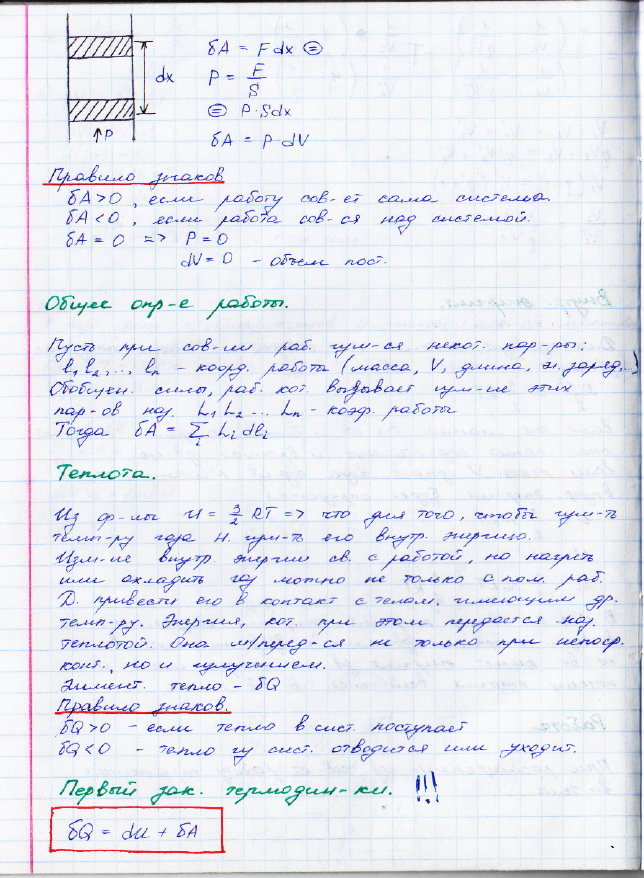 δA = Fdx ⊜
dx
P = F/S
⊜ P·Sdx
↑P
δA = P·dV
Правило знаков
δA>0, если работу сов-ет сама система.
δA<0, если работа сов-ся над системой.
δA = 0 => P=0
dV=0 - объем пост.
Общее опр-е работы.
Пусть при сов-ии раб. изм-ся некот. пар-ры:
l₁ l₂ ,..., lₙ - коорд. работы (масса, V, длина, эл. заряд,...)
Обобщен. силы, раб. кот. вызывает изм-ие этих
пар-ов наз. L₁ L₂ ... Lₙ - коэф. работы
Тогда δA = ∑ᵢ Lᵢ dlᵢ
Теплота.
Из ф-лы U = 3/2 RT => что для того, чтобы изм-ть
темп-ру газа н. изм-ть его внутр. энергию.
Изм-ие внутр. энергии св. с работой, но нагреть
или охладить газ можно не только с пом. раб.
Д. привести его в контакт с телом, имеющим др.
темп-ру. Энергия, кот. при этом передается наз.
теплотой. Она м/перед-ся не только при непоср.
конт., но и излучением.
Элемент. тепло - δQ
Правило знаков.
δQ>0 - если тепло в сист. поступает
δQ<0 - тепло из сист. отводится или уходит.
Первый зак. термодин-ки. !!!
δQ = dU + δA